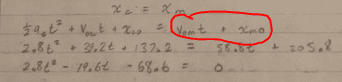 x_c = x_m
½a_c t² + v_oc t + x_co = v_om t + x_mo
2.8t² + 39.2t + 137.2 = 58.8t + 205.8
2.8t² - 19.6t - 68.6 = 0